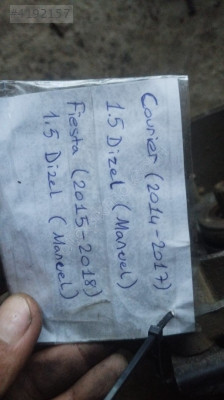 #4192157
Courier (2014-2017)
1.5 Dizel (Manuel)
Fiesta (2015-2018)
1.5 Dizel (Manuel)